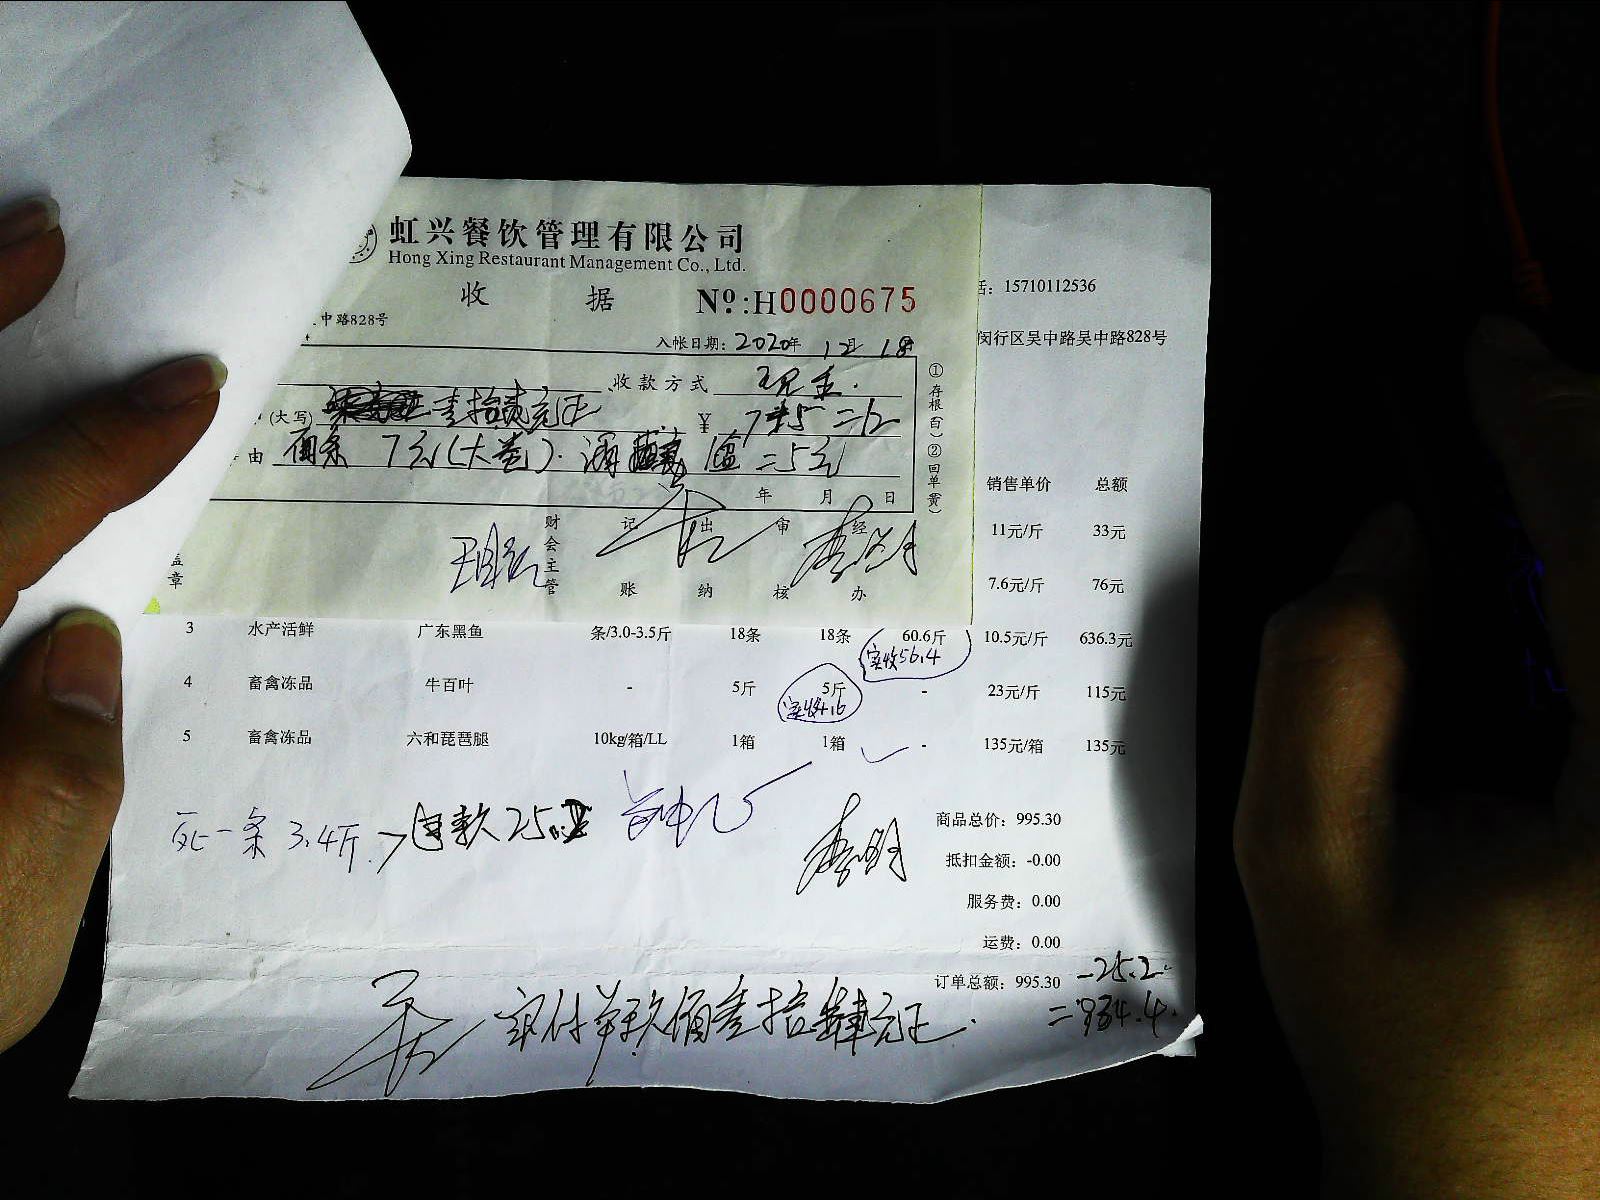 虹兴餐饮管理有限公司
Hong Xing Restaurant Management Co., Ltd.
收 据 Nº:H0000675
中路828号
入帐日期: 2020年 12月 18
收款方式 现金.
(大写) 壹拾贰元正 ¥ 7+5=12
由 面条 7元(大卷). 酒酿壹盒=5元
年 月 日
①存根(白)②回单(黄)
财会主管 记账 出纳 审核 经办
盖章
话: 15710112536
闵行区吴中路吴中路828号
销售单价 总额
11元/斤 33元
7.6元/斤 76元
3 水产活鲜 广东黑鱼 条/3.0-3.5斤 18条 18条 60.6斤 10.5元/斤 636.3元
实收56.4
4 畜禽冻品 牛百叶 - 5斤 5斤 - 23元/斤 115元
实收4.6
5 畜禽冻品 六和琵琶腿 10kg/箱/LL 1箱 1箱 - 135元/箱 135元
死一条 3.4斤
商品总价: 995.30
抵扣金额: -0.00
服务费: 0.00
运费: 0.00
订单总额: 995.30 -25.2
=934.4